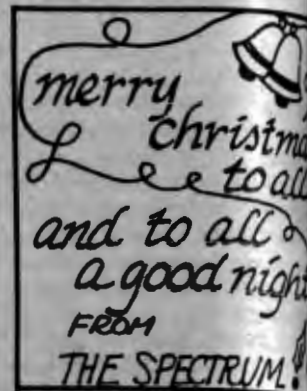 merry
christma
to all
and to all
a good night
FROM
THE SPECTRUM